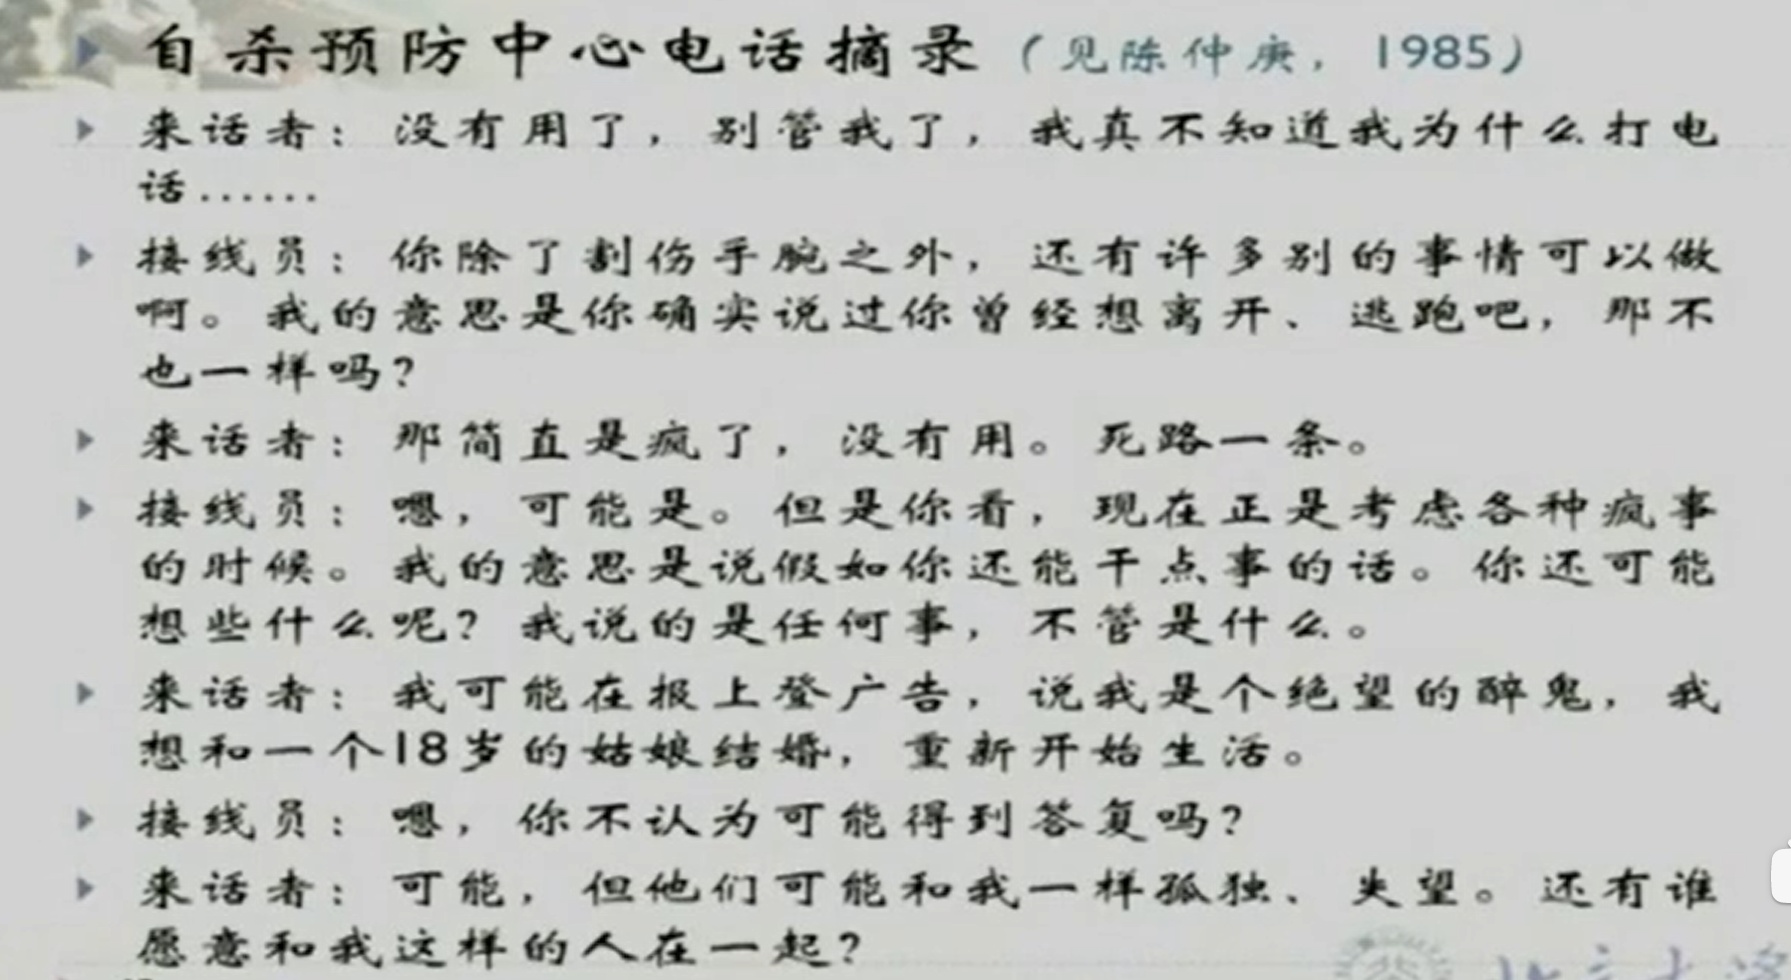 自杀预防中心电话摘录（见陈仲庚，1985）
来话者：没有用了，别管我了，我真不知道我为什么打电
话......
接线员：你除了割伤手腕之外，还有许多别的事情可以做
啊。我的意思是你确实说过你曾经想离开、逃跑吧，那不
也一样吗？
来话者：那简直是疯了，没有用。死路一条。
接线员：嗯，可能是。但是你看，现在正是考虑各种疯事
的时候。我的意思是说假如你还能干点事的话。你还可能
想些什么呢？我说的是任何事，不管是什么。
来话者：我可能在报上登广告，说我是个绝望的醉鬼，我
想和一个18岁的姑娘结婚，重新开始生活。
接线员：嗯，你不认为可能得到答复吗？
来话者：可能，但他们可能和我一样孤独、失望。还有谁
愿意和我这样的人在一起？